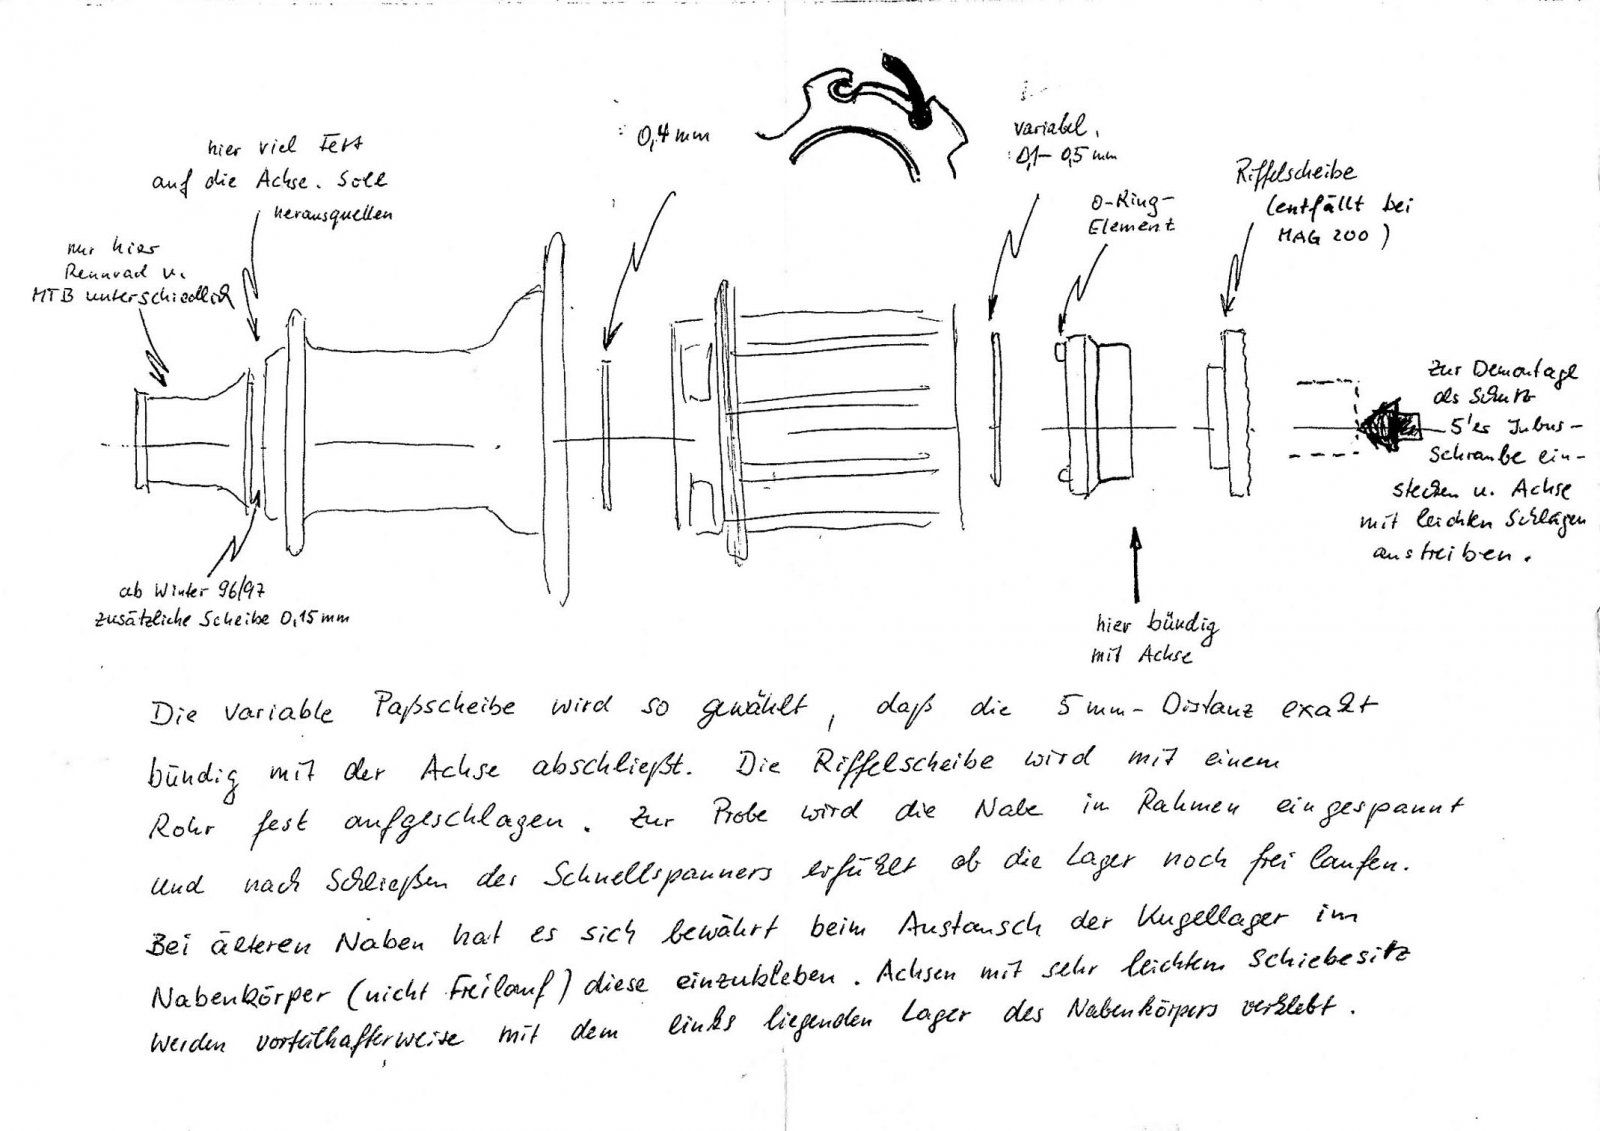 hier viel Fett
auf die Achse. Soll
herausquellen
nur hier
Rennrad u.
MTB unterschiedlich
0,4 mm
variabel.
0,1 – 0,5 mm
O-Ring-
Element
Riffelscheibe
(entfällt bei
MAG 200)
zur Demontage
als Schutz
5'er Inbus-
Schraube ein-
stecken u. Achse
mit leichten Schlägen
austreiben.
ab Winter 96/97
zusätzliche Scheibe 0,15 mm
hier bündig
mit Achse
Die variable Paßscheibe wird so gewählt, daß die 5 mm-Distanz exakt
bündig mit der Achse abschließt. Die Riffelscheibe wird mit einem
Rohr fest aufgeschlagen. Zur Probe wird die Nabe im Rahmen eingespannt
und nach Schließen des Schnellspanners erfühlt ob die Lager noch frei laufen.
Bei älteren Naben hat es sich bewährt beim Austausch der Kugellager im
Nabenkörper (nicht Freilauf) diese einzukleben. Achsen mit sehr leichtem Schiebesitz
werden vorteilhafterweise mit dem links liegenden Lager des Nabenkörpers verklebt.